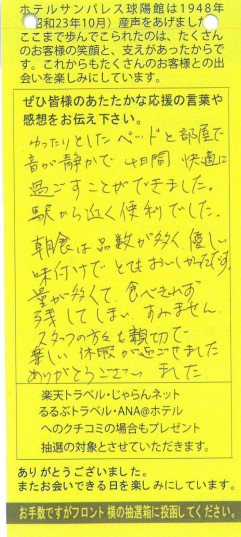 ホテルサンパレス球陽館は1948年
(昭和23年10月) 産声をあげました
ここまで歩んでこられたのは、たくさん
のお客様の笑顔と、支えがあったからで
す。これからもたくさんのお客様との出
会いを楽しみにしています。
ぜひ皆様のあたたかな応援の言葉や
感想をお伝え下さい。
ゆったりとしたベッドと部屋で
音が静かで 4日間 快適に
過ごすことができました。
駅から近く便利でした。
朝食は品数が多く、優しい
味付けで とてもおいしかったです。
量が多くて、食べきれず
残してしまい すみません。
スタッフの方々も親切で
楽しい 休暇が過ごせました
ありがとうござい ました。
楽天トラベル・じゃらんネット
るるぶトラベル・ANA@ホテル
へのクチコミの場合もプレゼント
抽選の対象とさせていただきます。
ありがとうございました。
またお会いできる日を楽しみにしています。
お手数ですがフロント横の抽選箱に投函してください。